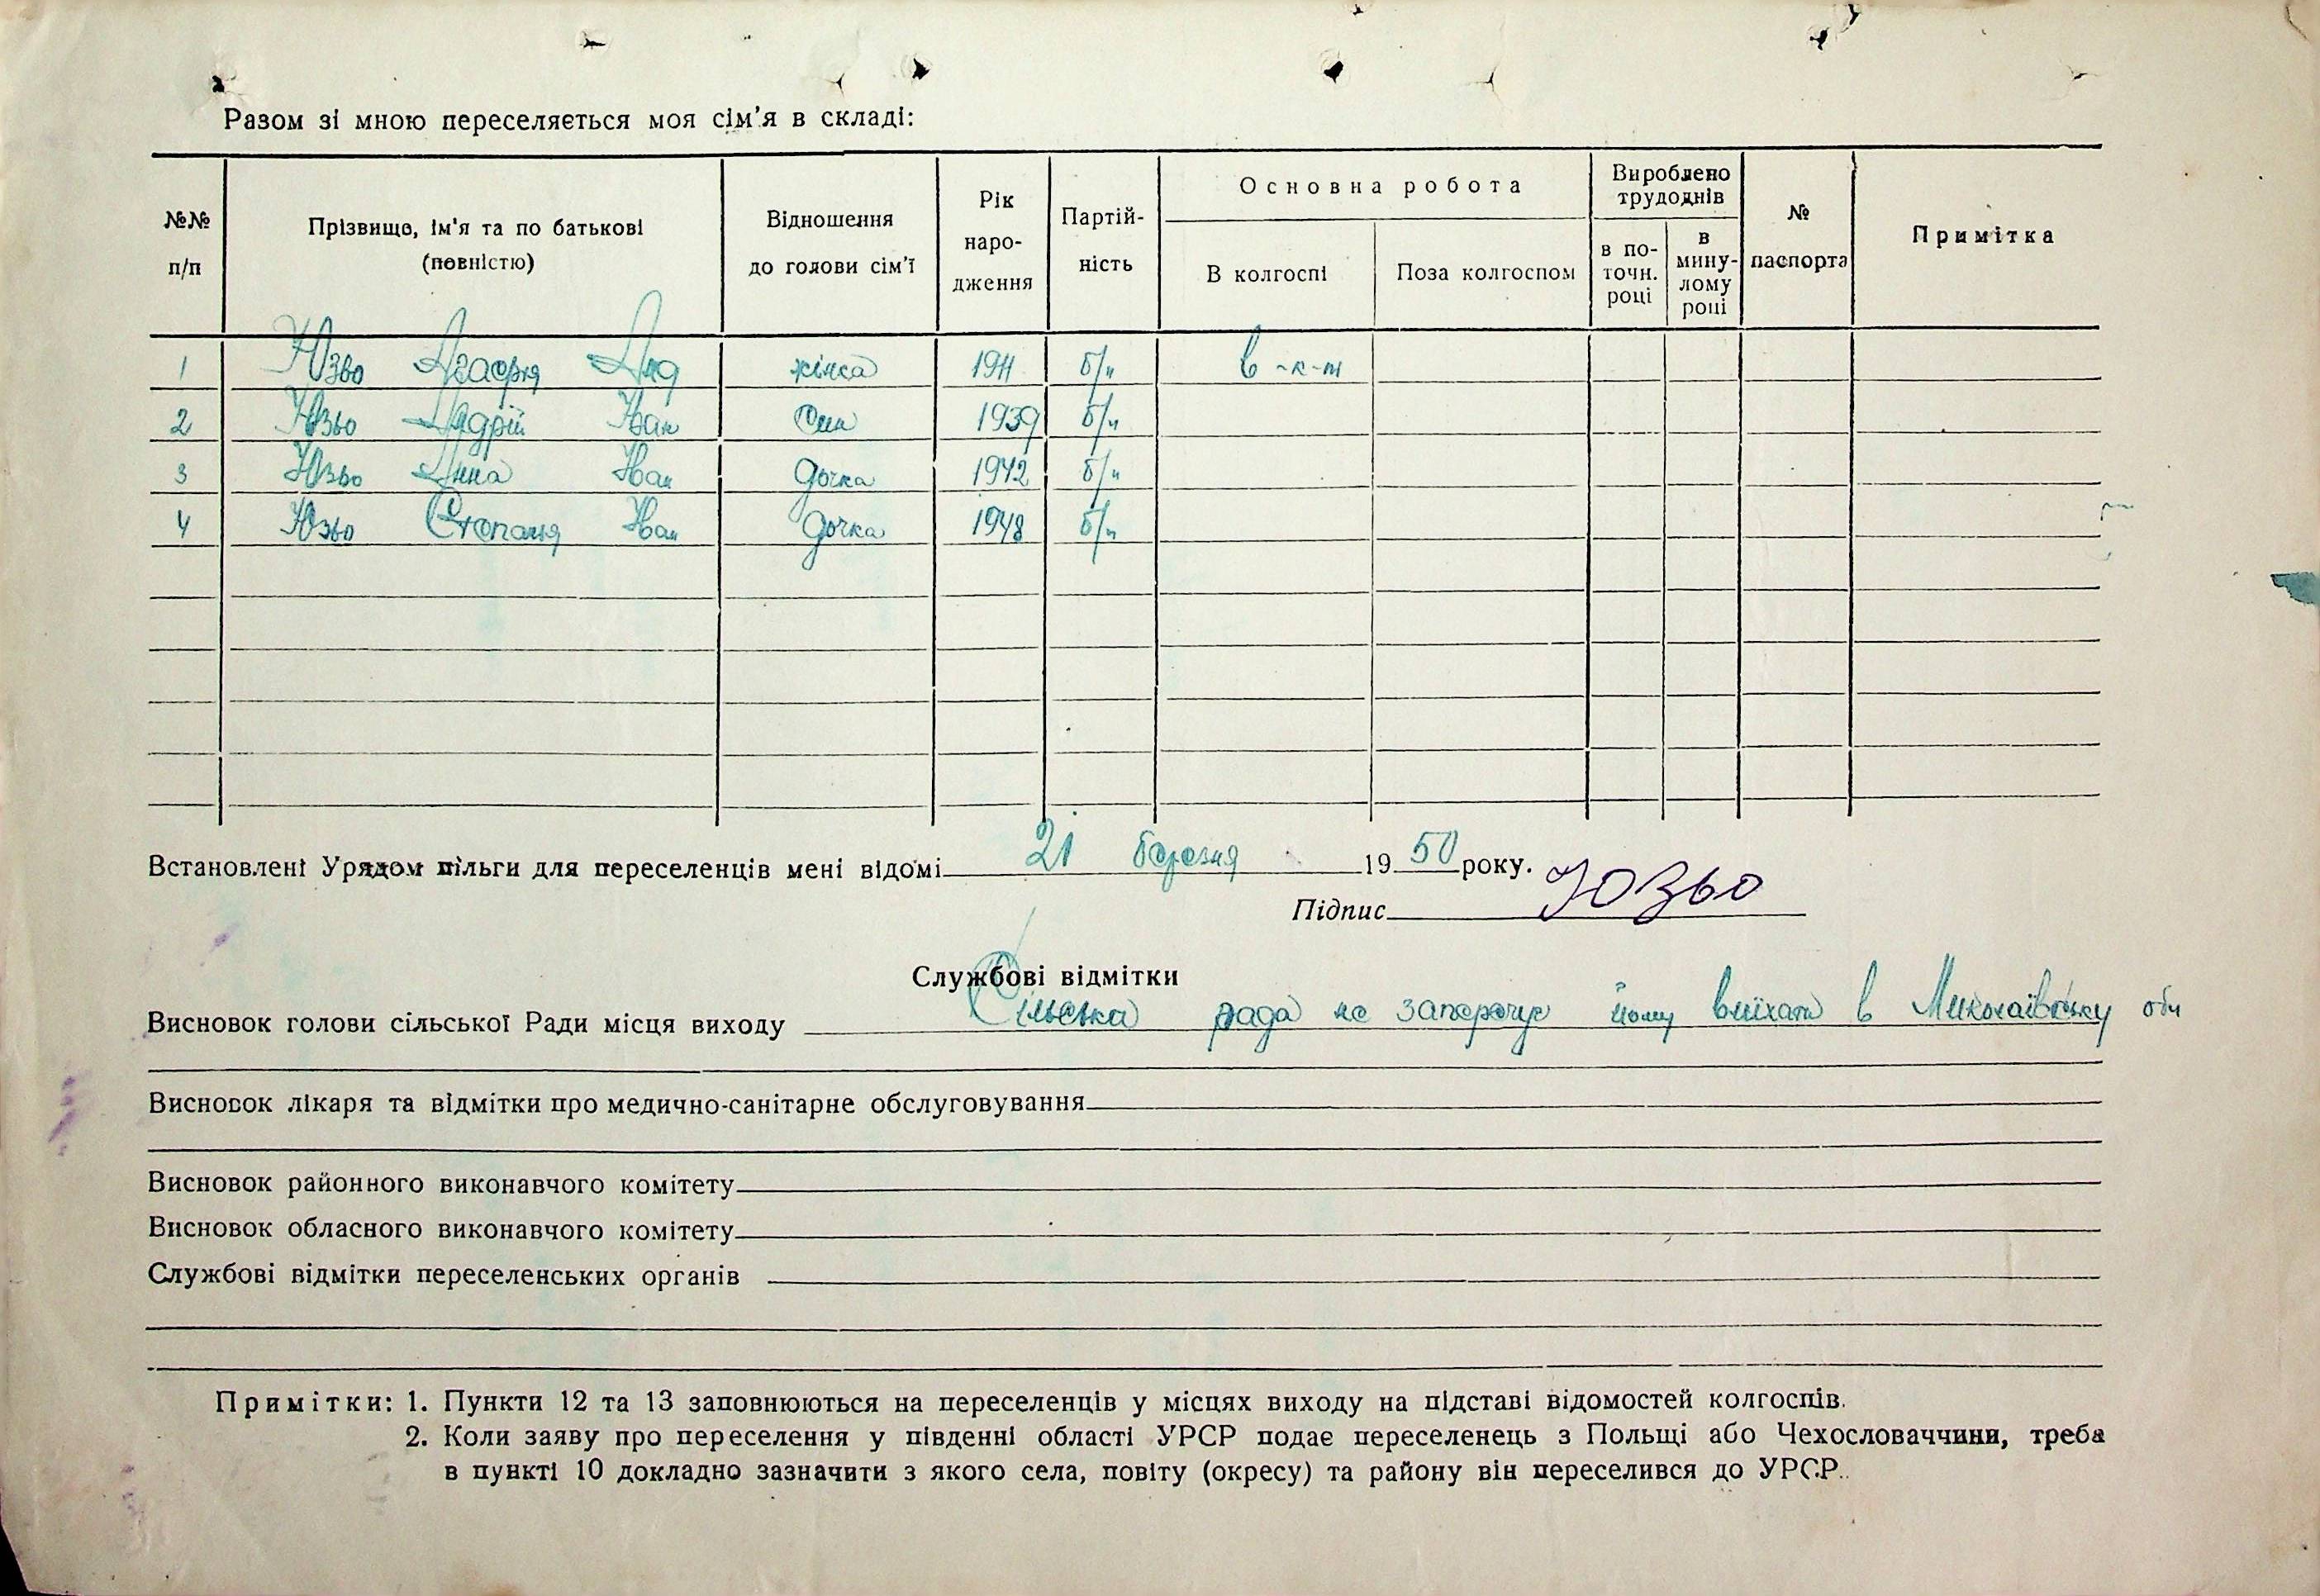 Разом зі мною переселяється моя сім'я в складі:
№№ п/п | Прізвище, ім'я та по батькові (повністю) | Відношення до голови сім'ї | Рік народження | Партійність | Основна робота | Вироблено трудоднів | № паспорта | Примітка
В колгоспі | Поза колгоспом | в поточн. році | в минулому році
1 Юзьо Агафія Анд жінка 1911 б/п в-к-т
2 Юзьо Андрій Іван Син 1939 б/п
3 Юзьо Анна Іван дочка 1942 б/п
4 Юзьо Степанія Іван дочка 1948 б/п
Встановлені Урядом пільги для переселенців мені відомі 21 березня 1950 року.
Підпис Юзьо
Службові відмітки
Висновок голови сільської Ради місця виходу Сільська рада не заперечує йому виїхати в Миколаївську обл
Висновок лікаря та відмітки про медично-санітарне обслуговування
Висновок районного виконавчого комітету
Висновок обласного виконавчого комітету
Службові відмітки переселенських органів
Примітки: 1. Пункти 12 та 13 заповнюються на переселенців у місцях виходу на підставі відомостей колгоспів.
2. Коли заяву про переселення у південні області УРСР подає переселенець з Польщі або Чехословаччини, треба
в пункті 10 докладно зазначити з якого села, повіту (окресу) та району він переселився до УРСР.